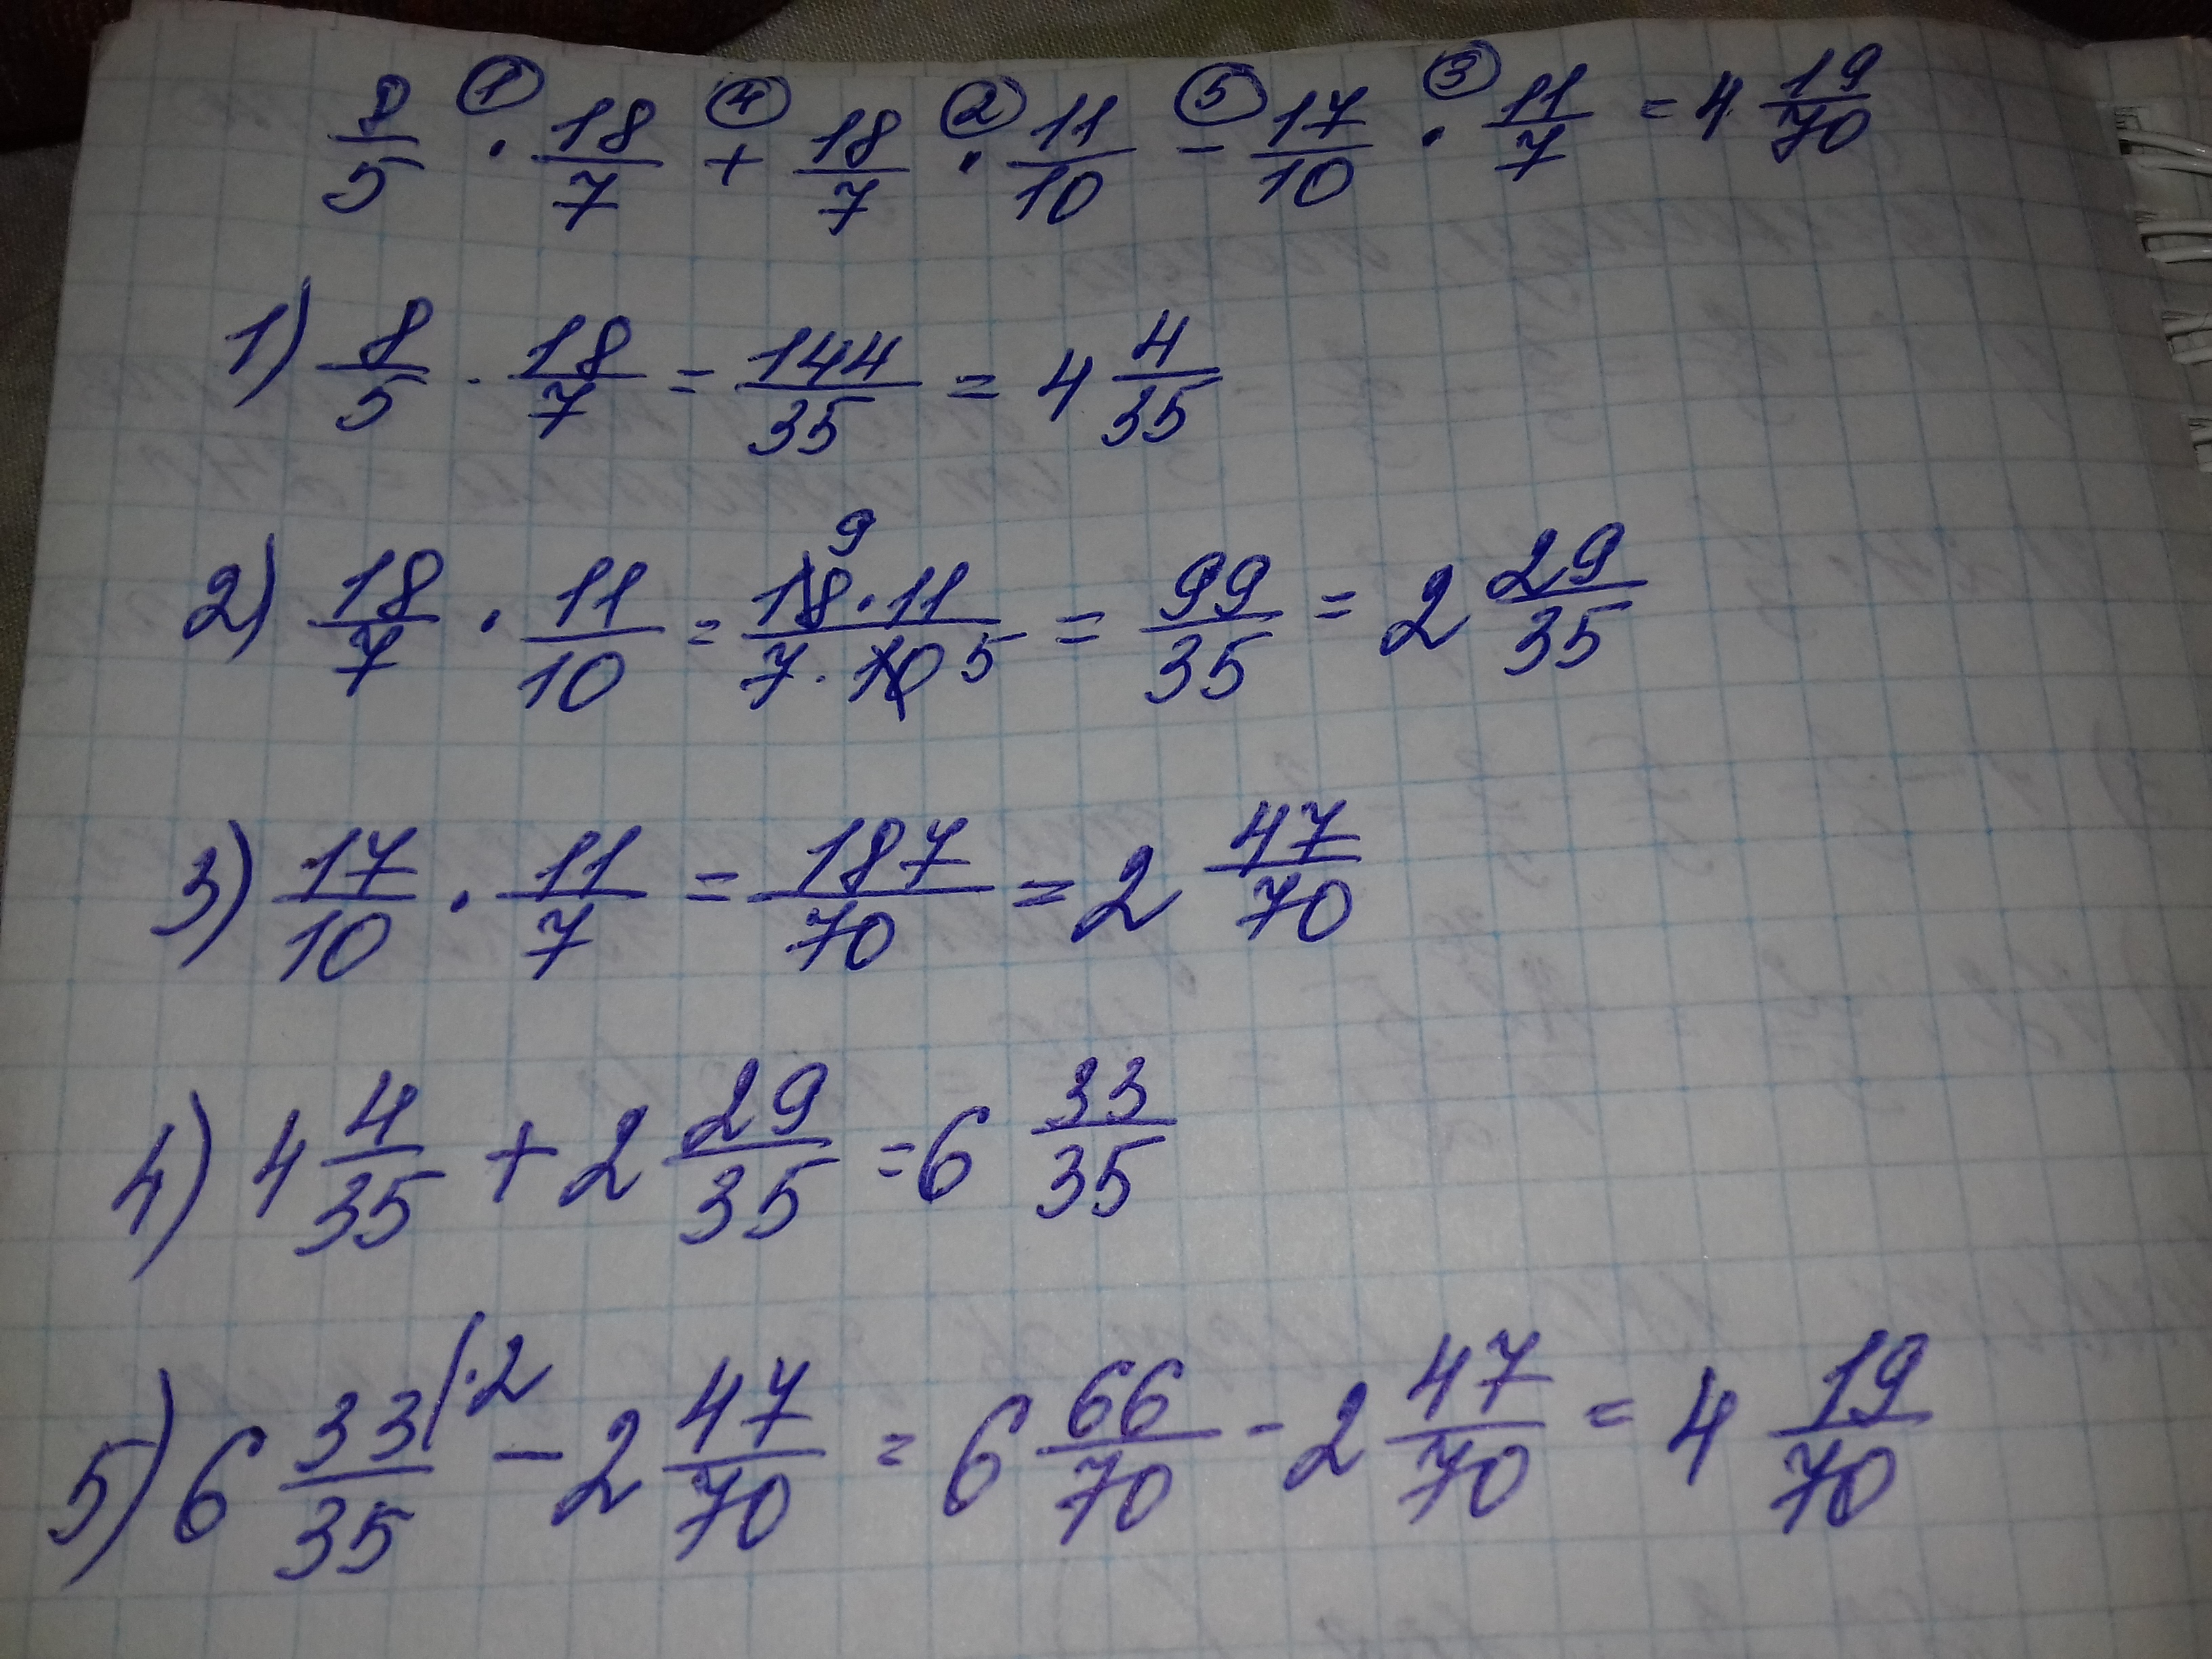 8/5 ①· 18/7 ④+ 18/7 ②· 11/10 ⑤- 17/10 ③· 11/7 = 4 19/70
1) 8/5 · 18/7 = 144/35 = 4 4/35
2) 18/7 · 11/10 = 18 9 · 11/7 · 10 5 = 99/35 = 2 29/35
3) 17/10 · 11/7 = 187/70 = 2 47/70
4) 4 4/35 + 2 29/35 = 6 33/35
5) 6 33/35 |·2 - 2 47/70 = 6 66/70 - 2 47/70 = 4 19/70